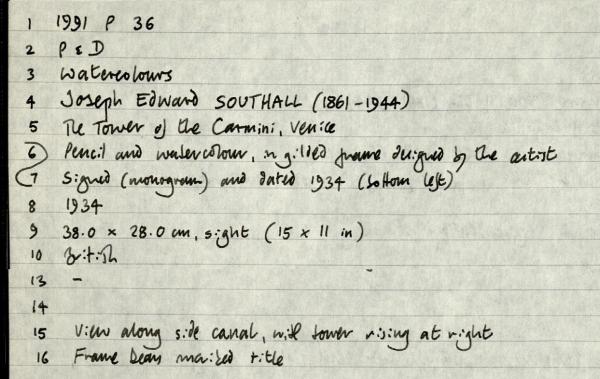 1 1991 P 36
2 P & D
3 Watercolours
4 Joseph Edward SOUTHALL (1861-1944)
5 The Tower of the Carmini, Venice
6 Pencil and watercolour, in gilded frame designed by the artist
7 Signed (monogram) and dated 1934 (bottom left)
8 1934
9 38.0 x 28.0 cm, sight (15 x 11 in)
10 British
13 -
14
15 View along side canal, with tower rising at right
16 Frame bears incised title